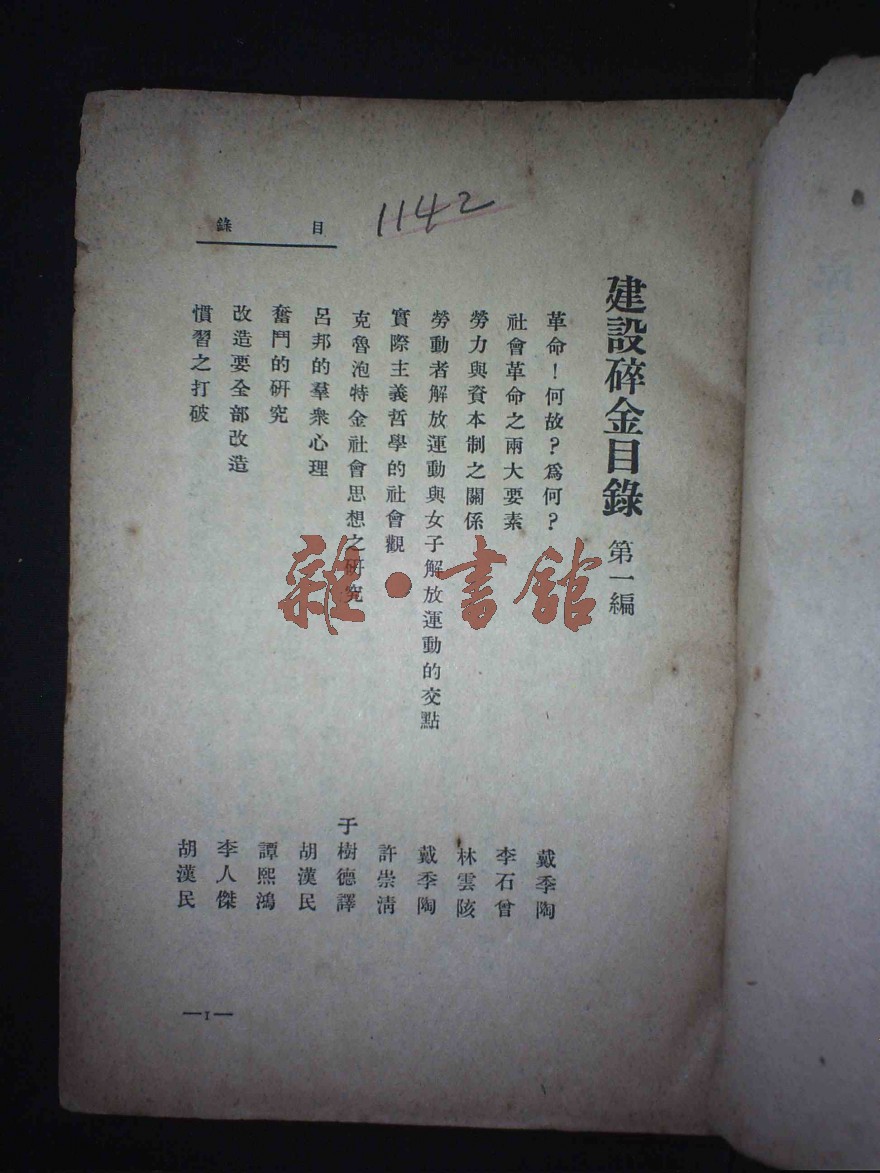 1142
目錄
建設碎金目錄 第一編
革命！何故？爲何？ 戴季陶
社會革命之兩大要素 李石曾
勞力與資本制之關係 林雲陔
勞動者解放運動與女子解放運動的交點 戴季陶
實際主義哲學的社會觀 許崇清
克魯泡特金社會思想之研究 于樹德譯
呂邦的羣衆心理 胡漢民
奮鬥的研究 譚熙鴻
改造要全部改造 李人傑
慣習之打破 胡漢民
—1—
雜·書館